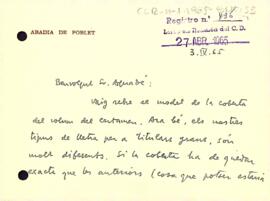 ABADIA DE POBLET
Registro n.º 436
27 ABR. 1965
3.IV.65
Benvolgut Sr. Aguadé:
Vaig rebre el model de la coberta
del volum del certamen. Ara bé, els nostres
tipus de lletra per a titulars grans, són
molt diferents. Si la coberta ha de quedar
exacte que les anteriors (cosa que potser estaria